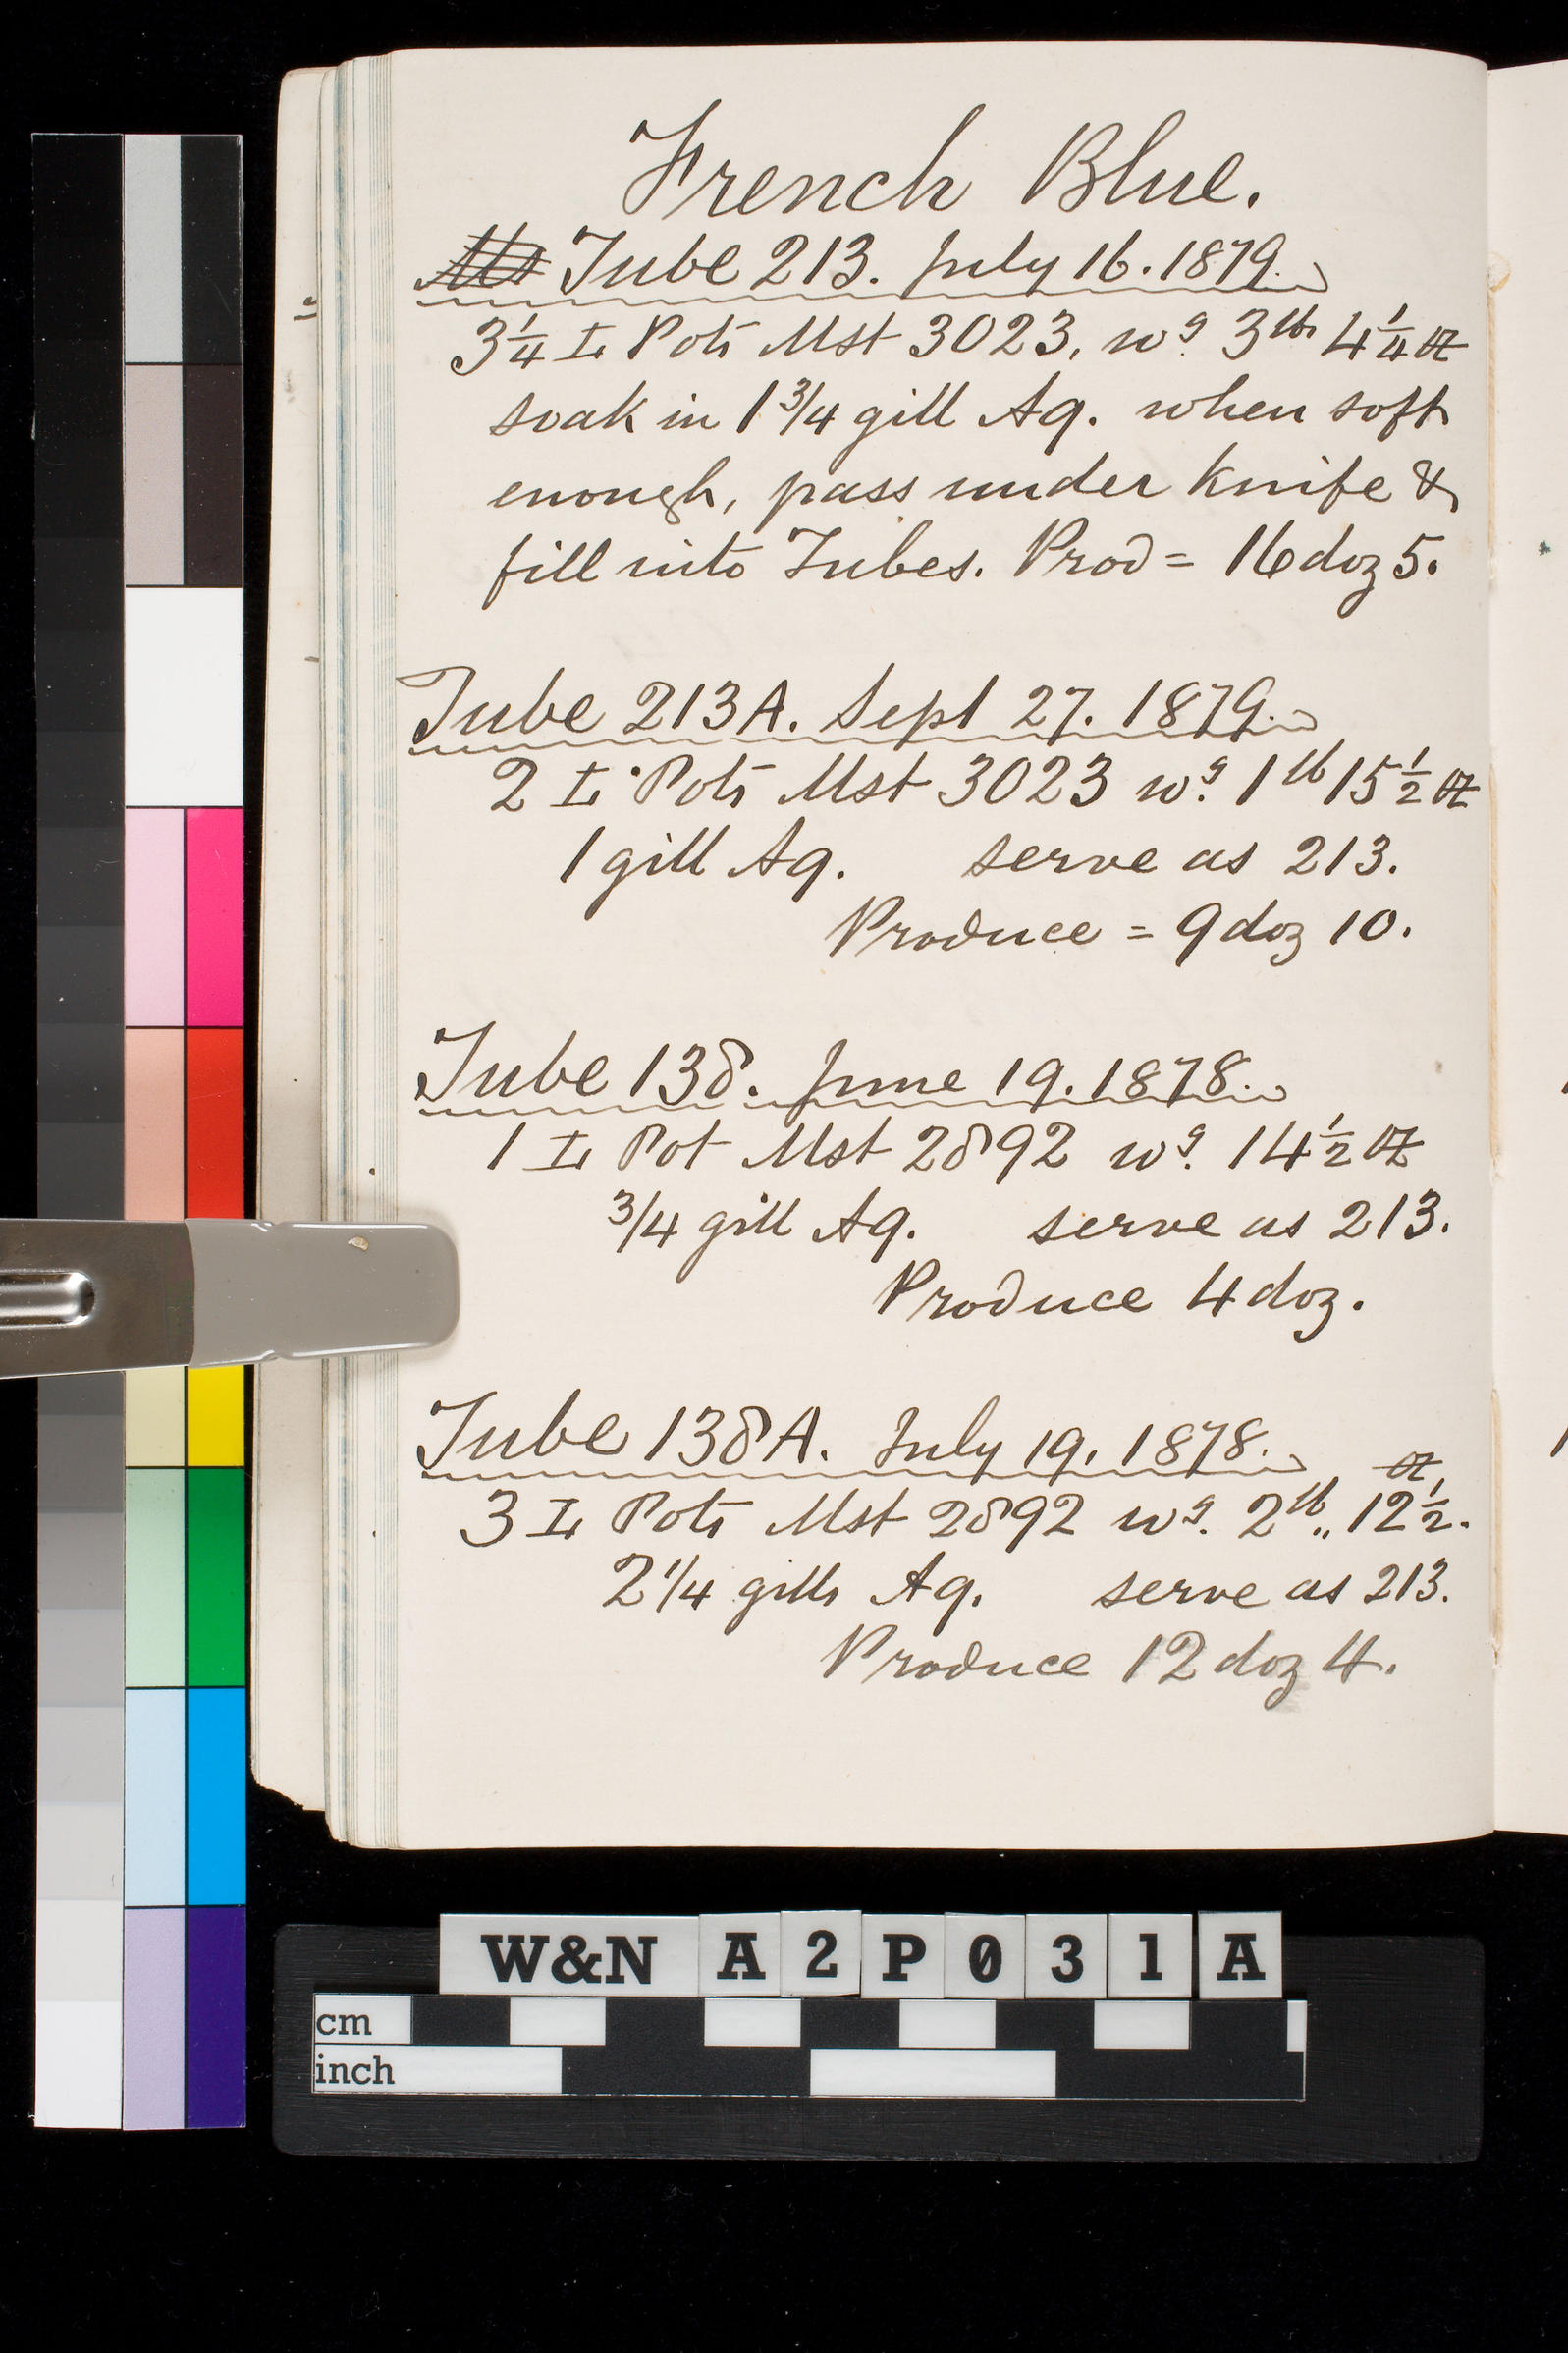 French Blue.
Tube 213. July 16. 1879.
3 1/4 L Pots Mst 3023, wg. 3 lbs 4 1/4 oz
soak in 1 3/4 gill Aq. when soft
enough, pass under knife &
fill into Tubes. Prod = 16 doz 5.
Tube 213A. Sept 27. 1879.
2 L Pots Mst 3023 wg. 1 lb 15 1/2 oz
1 gill Aq. serve as 213.
Produce = 9 doz 10.
Tube 138. June 19. 1878.
1 L Pot Mst 2892 wg. 14 1/2 oz
3/4 gill Aq. serve as 213.
Produce 4 doz.
Tube 138A. July 19, 1878.
oz
3 L Pots Mst 2892 wg. 2 lb,, 12 1/2.
2 1/4 gills Aq. serve as 213.
Produce 12 doz 4.
W&N A2P031A
cm
inch